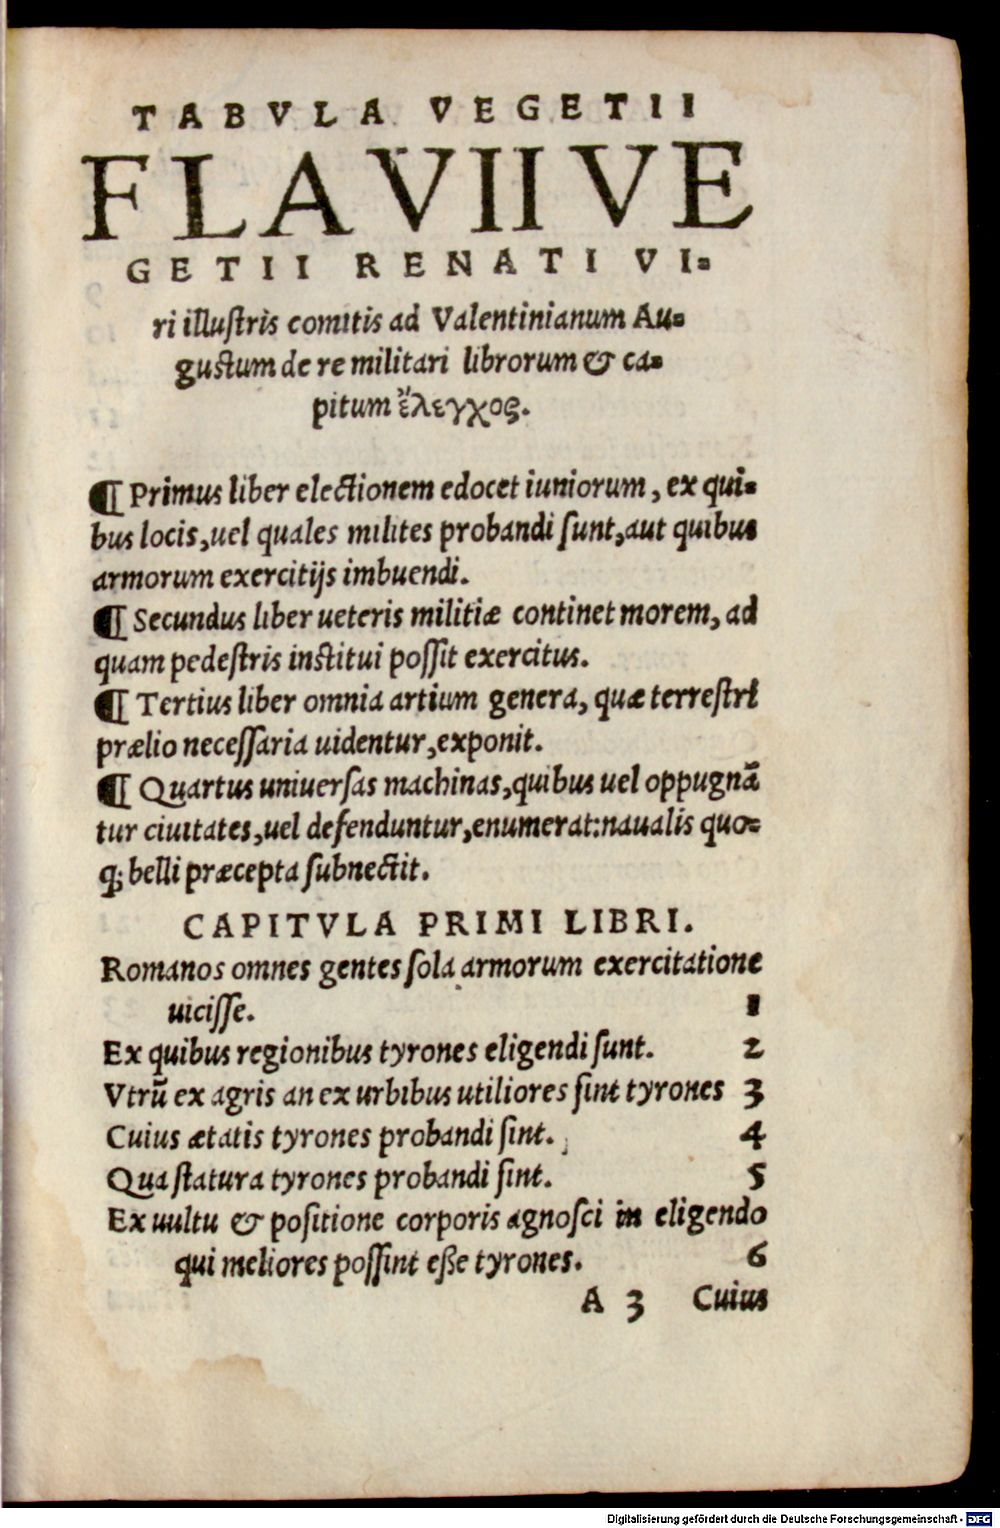 TABVLA VEGETII
FLAVII VE
GETII RENATI VI-
ri illustris comitis ad Valentinianum Au-
gustum de re militari librorum & ca-
pitum ἔλεγχος.
¶ Primus liber electionem edocet iuniorum, ex qui-
bus locis, uel quales milites probandi sunt, aut quibus
armorum exercitijs imbuendi.
¶ Secundus liber ueteris militiæ continet morem, ad
quam pedestris institui possit exercitus.
¶ Tertius liber omnia artium genera, quæ terrestri
prælio necessaria uidentur, exponit.
¶ Quartus uniuersas machinas, quibus uel oppugnã
tur ciuitates, uel defenduntur, enumerat: naualis quo-
q; belli præcepta subnectit.
CAPITVLA PRIMI LIBRI.
Romanos omnes gentes sola armorum exercitatione
uicisse. 1
Ex quibus regionibus tyrones eligendi sunt. 2
Vtrũ ex agris an ex urbibus utiliores sint tyrones 3
Cuius ætatis tyrones probandi sint. 4
Qua statura tyrones probandi sint. 5
Ex uultu & positione corporis agnosci in eligendo
qui meliores possint eße tyrones. 6
A 3 Cuius
Digitalisierung gefördert durch die Deutsche Forschungsgemeinschaft - DFG